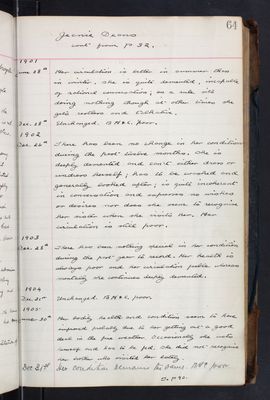 64
Jeanie Deans
cont from p. 32.
1901
June 28th Her circulation is better in summer than
in winter. She is quite demented, incapable
of rational conversation; as a rule sits
doing nothing though at other times she
gets restless and
Dec. 28th Unchanged. B.H. & C. poor.
1902
Dec. 26th There has been no change in her condition
during the past twelve months. She is
deeply demented and can't either dress or
undress herself; has to be washed and
generally looked after; is quite incoherent
in conversation and expresses no wishes
or desires nor does she seem to recognise
her sister when she visits her. Her
circulation is still poor.
1903
Dec. 28th There has been nothing special in her condition
during the past year to record. Her health is
always poor and her circulation feeble whereas
mentally she continues deeply demented.
1904
Dec. 31st Unchanged. B.H. & C. poor
1905
June 30th Her bodily health and condition seem to have
improved probably due to her getting out a good
deal in the fine weather. Occasionally she wets
herself and has to be fed; she did not recognise
her sister who visited her lately.
Dec 31st Her condition remains the same. B.H. poor